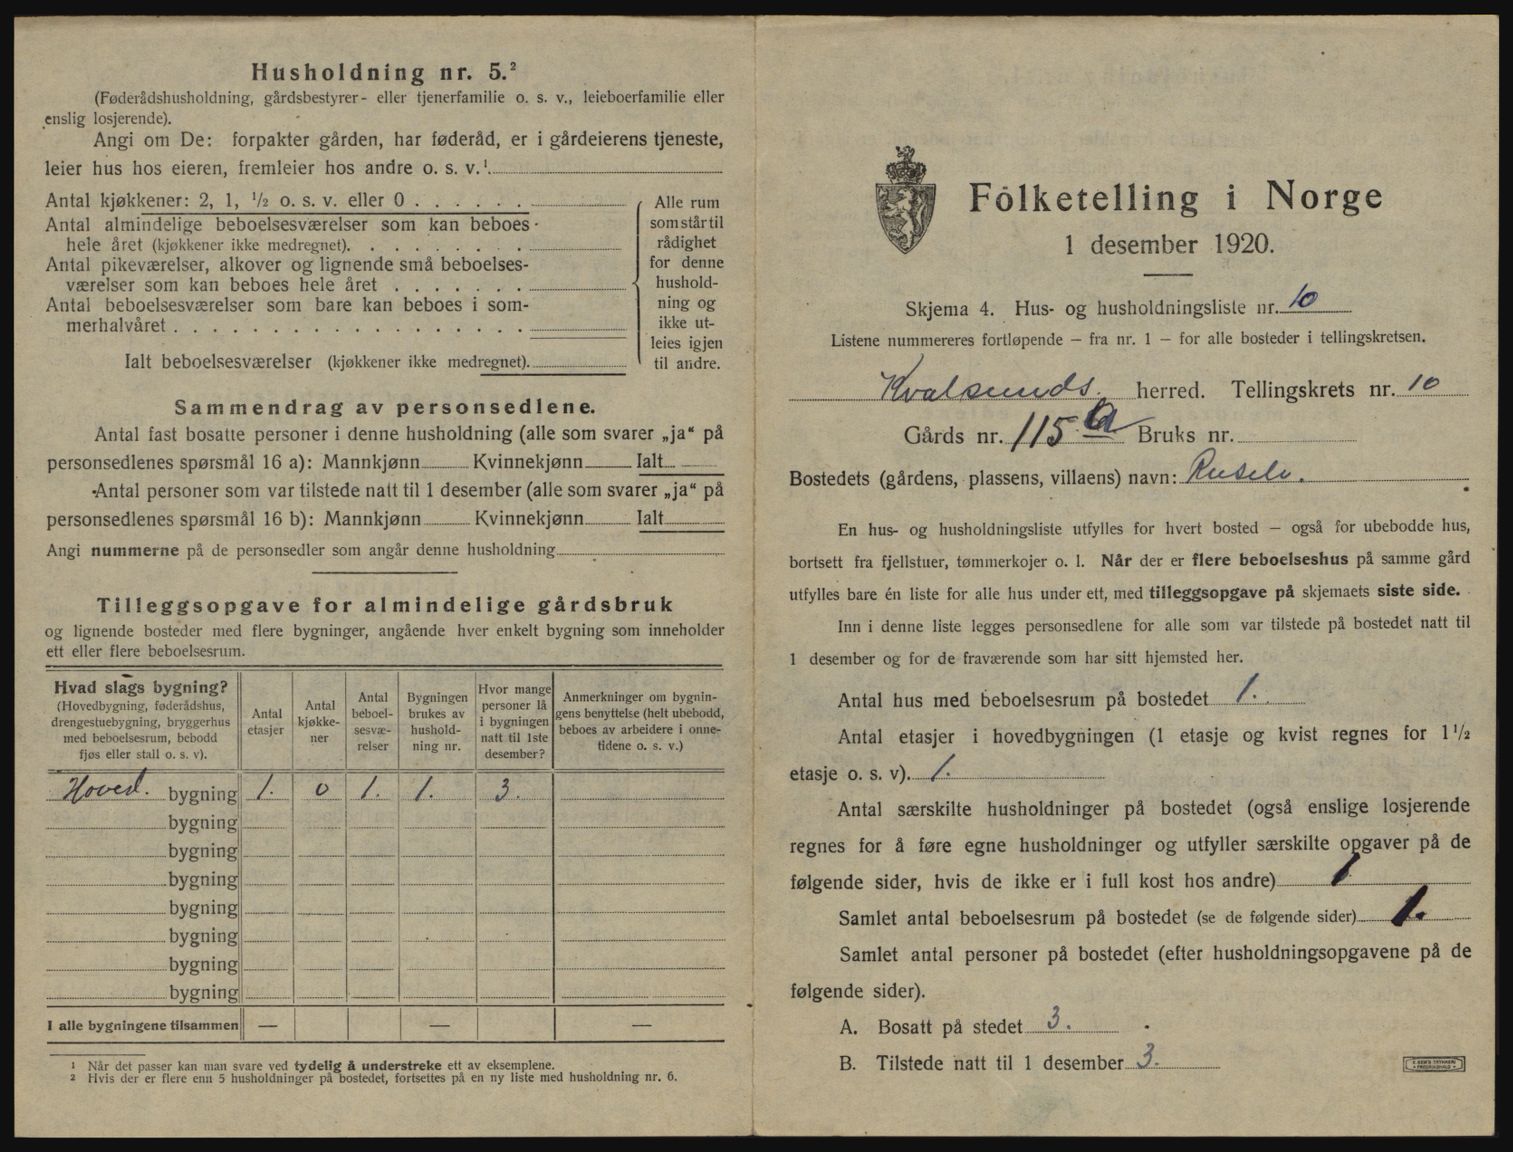 Husholdning nr. 5.²
(Føderådshusholdning, gårdsbestyrer- eller tjenerfamilie o. s. v., leieboerfamilie eller
enslig losjerende).
Angi om De: forpakter gården, har føderåd, er i gårdeierens tjeneste,
leier hus hos eieren, fremleier hos andre o. s. v.¹
Antal kjøkkener: 2, 1, ½ o. s. v. eller 0 . . . . . .
Antal almindelige beboelsesværelser som kan beboes
hele året (kjøkkener ikke medregnet). . . . . . . . .
Antal pikeværelser, alkover og lignende små beboelses-
værelser som kan beboes hele året . . . . . . .
Antal beboelsesværelser som bare kan beboes i som-
merhalvåret . . . . . . . . . . . . . . . . . .
Ialt beboelsesværelser (kjøkkener ikke medregnet).
Alle rum
som står til
rådighet
for denne
hushold-
ning og
ikke ut-
leies igjen
til andre.
Sammendrag av personsedlene.
Antal fast bosatte personer i denne husholdning (alle som svarer „ja“ på
personsedlenes spørsmål 16 a): Mannkjønn Kvinnekjønn Ialt
Antal personer som var tilstede natt til 1 desember (alle som svarer „ja“ på
personsedlenes spørsmål 16 b): Mannkjønn Kvinnekjønn Ialt
Angi nummerne på de personsedler som angår denne husholdning
Tilleggsopgave for almindelige gårdsbruk
og lignende bosteder med flere bygninger, angående hver enkelt bygning som inneholder
ett eller flere beboelsesrum.
Hvad slags bygning?
(Hovedbygning, føderådshus,
drengestuebygning, bryggerhus
med beboelsesrum, bebodd
fjøs eller stall o. s. v).
Antal
etasjer
Antal
kjøkke-
ner
Antal
beboel-
sesvæ-
relser
Bygningen
brukes av
hushold-
ning nr.
Hvor mange
personer lå
i bygningen
natt til 1ste
desember?
Anmerkninger om bygnin-
gens benyttelse (helt ubebodd,
beboes av arbeidere i onne-
tidene o. s. v.)
Hoved. bygning 1. 0 1. 1. 3.
bygning
bygning
bygning
bygning
bygning
bygning
bygning
I alle bygningene tilsammen — — —
¹ Når det passer kan man svare ved tydelig å understreke ett av eksemplene.
² Hvis der er flere enn 5 husholdninger på bostedet, fortsettes på en ny liste med husholdning nr. 6.
Folketelling i Norge
1 desember 1920.
Skjema 4. Hus- og husholdningsliste nr. 10
Listene nummereres fortløpende — fra nr. 1 — for alle bosteder i tellingskretsen.
Kvalsunds herred. Tellingskrets nr. 10
Gårds nr. 115 a Bruks nr.
Bostedets (gårdens, plassens, villaens) navn: Ruselv.
En hus- og husholdningsliste utfylles for hvert bosted — også for ubebodde hus,
bortsett fra fjellstuer, tømmerkojer o. l. Når der er flere beboelseshus på samme gård
utfylles bare én liste for alle hus under ett, med tilleggsopgave på skjemaets siste side.
Inn i denne liste legges personsedlene for alle som var tilstede på bostedet natt til
1 desember og for de fraværende som har sitt hjemsted her.
Antal hus med beboelsesrum på bostedet 1.
Antal etasjer i hovedbygningen (1 etasje og kvist regnes for 1½
etasje o. s. v). 1.
Antal særskilte husholdninger på bostedet (også enslige losjerende
regnes for å føre egne husholdninger og utfyller særskilte opgaver på de
følgende sider, hvis de ikke er i full kost hos andre) 1
Samlet antal beboelsesrum på bostedet (se de følgende sider) 1.
Samlet antal personer på bostedet (efter husholdningsopgavene på de
følgende sider).
A. Bosatt på stedet 3.
B. Tilstede natt til 1 desember 3.